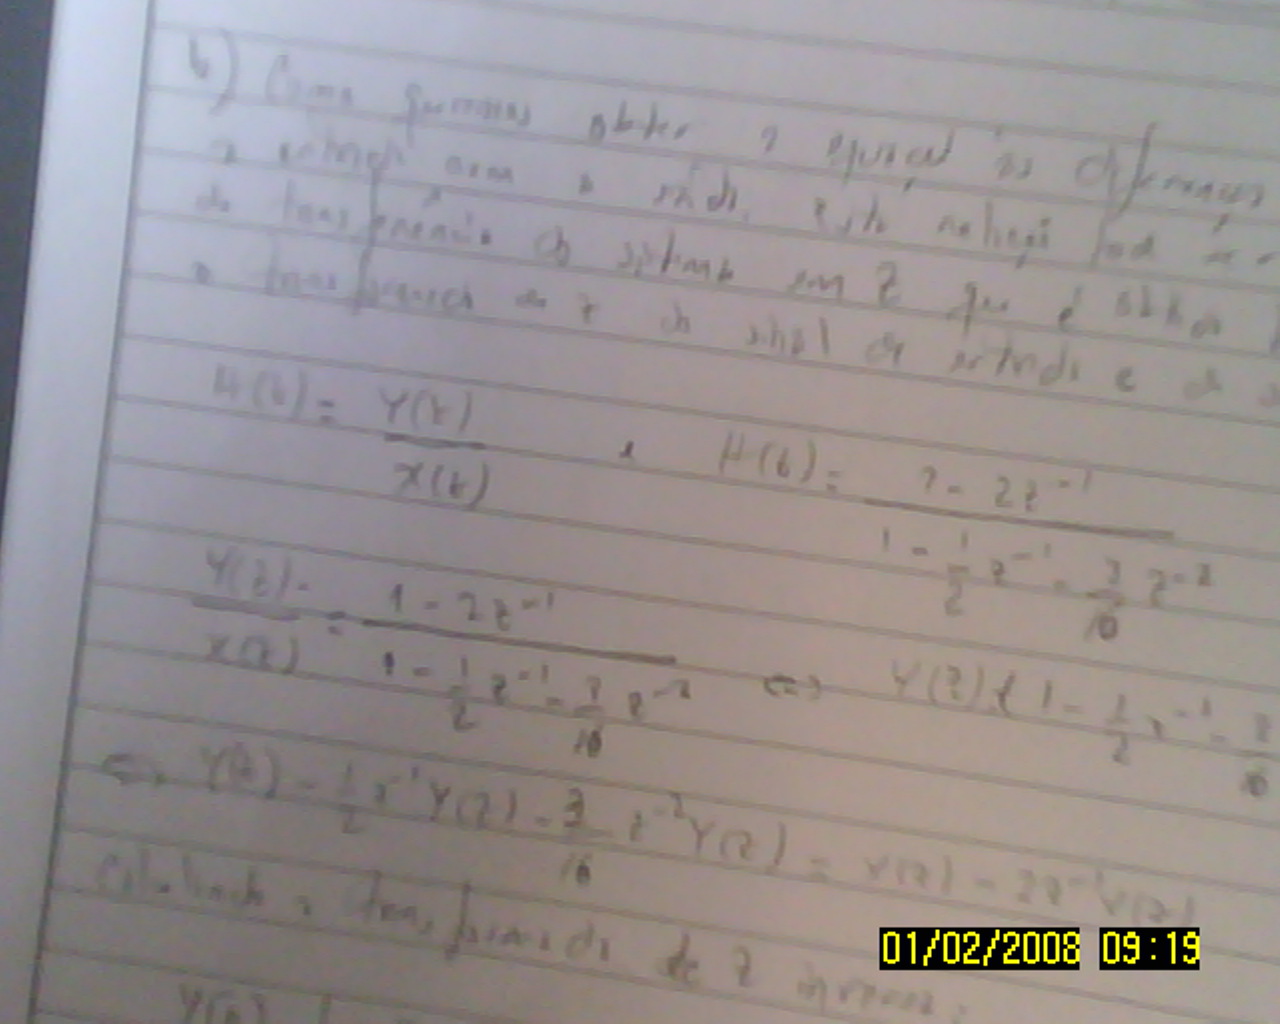 b) Como queremos obter a equação às diferenças
a relação com a saída. Esta relação pode
de transferência do sistema em Z que é obtida
a transformada de z do sinal de entrada e do
H(z) = Y(z) / X(z) e H(z) = 1 - 2z⁻¹ / 1 - 1/2 z⁻¹ - 3/16 z⁻²
Y(z) / X(z) = 1 - 2z⁻¹ / 1 - 1/2 z⁻¹ - 3/16 z⁻² <=> Y(z) { 1 - 1/2 z⁻¹ - 3/16
<=> Y(z) - 1/2 z⁻¹ Y(z) - 3/16 z⁻² Y(z) = X(z) - 2z⁻¹ X(z)
Calculando a transformada de Z inversa:
Y(n)
01/02/2008 09:19